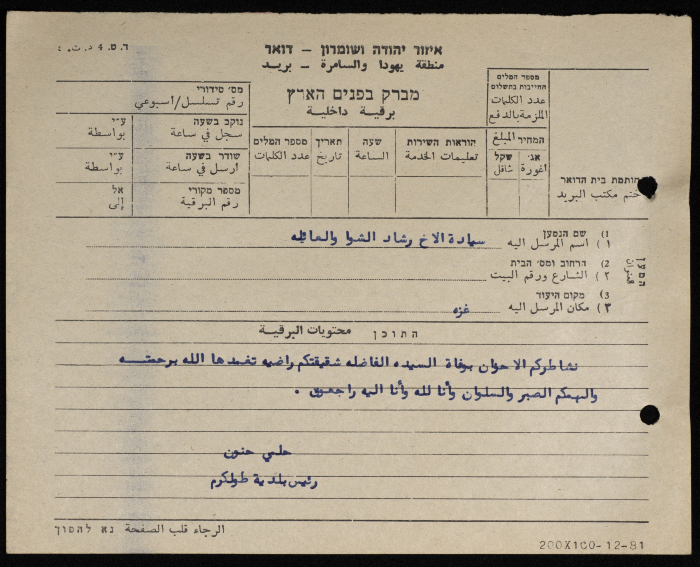 ד.ס. 4 ד.ת. 4
איזור יהודה ושומרון - דואר
منطقة يهودا والسامرة - بريد
מברק בפנים הארץ
برقية داخلية
מס׳ סידורי
رقم تسلسل/اسبوعي
נוקב בשעה
سجل في ساعة
ע״י
بواسطة
שודר בשעה
أرسل في ساعة
ע״י
بواسطة
מספר מקורי
رقم البرقية
אל
إلى
מספר המלים
عدد الكلمات
תאריך
تاريخ
שעה
الساعة
הוראות השירות
تعليمات الخدمة
מספר המלים
החייבות בתשלום
عدد الكلمات
الملزمة بالدفع
המחיר المبلغ
שקל
شاقل
אג׳
اغورة
חותמת בית הדואר
ختم مكتب البريد
המען
عنوان
1) שם הנמען
١) اسم المرسل اليه سيادة الاخ رشاد الشوا والعائله
2) הרחוב ומס׳ הבית
٢) الشارع ورقم البيت
3) מקום היעוד
٣) مكان المرسل اليه غزه
התוכן محتويات البرقية
نشاطركم الاحزان بوفاة السيده الفاضله شقيقتكم راضيه تغمدها الله برحمته
والهمكم الصبر والسلوان وأنا لله وأنا اليه راجعون .
حلمي حنون
رئيس بلدية طولكرم
الرجاء قلب الصفحة נא להפוך
200X100-12-81